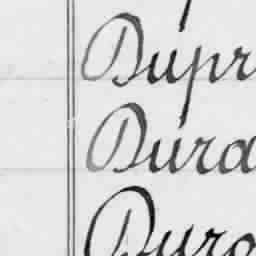 Dupr
Dura
Duro